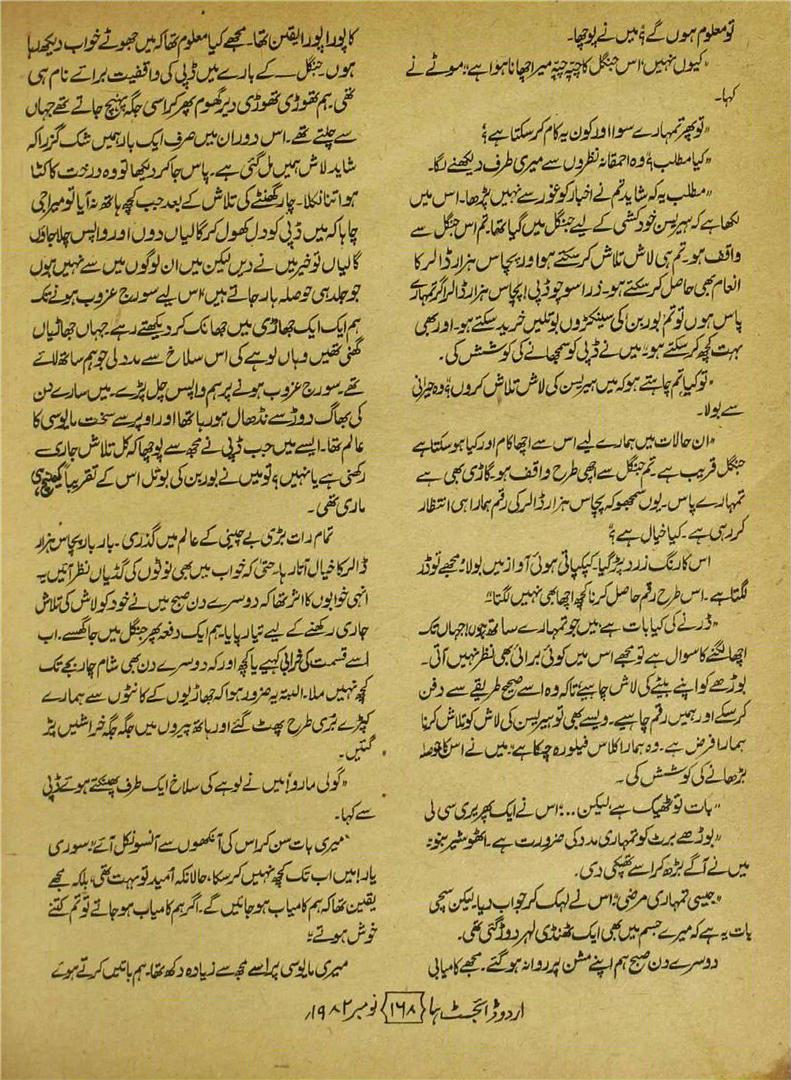 تو معلوم ہوں گے؟ میں نے پوچھا۔
"کیوں نہیں؛ اس جنگل کا چپّہ چپّہ میرا چھانا ہوا ہے" موٹے نے
کہا۔
"تو پھر تمہارے سوا اور کون یہ کام کر سکتا ہے؟"
"کیا مطلب؟" وہ احمقانہ نظروں سے میری طرف دیکھنے لگا۔
"مطلب یہ کہ شاید تم نے اخبار کو غور سے نہیں پڑھا۔ اس میں
لکھا ہے کہ ہیریسن خودکشی کے لیے جنگل میں گیا تھا۔ تم اس جنگل سے
واقف ہو۔ تم ہی لاش تلاش کر سکتے ہو اور پچاس ہزار ڈالر کا
انعام بھی حاصل کر سکتے ہو۔ ذرا سوچو ڈپی! پچاس ہزار ڈالر اگر تمہارے
پاس ہوں تو تم بوربن کی سینکڑوں بوتلیں خرید سکتے ہو۔ اور بھی
بہت کچھ کر سکتے ہو" میں نے ڈپی کو سمجھانے کی کوشش کی۔
"تو کیا تم چاہتے ہو کہ میں ہیریسن کی لاش تلاش کروں؟" وہ حیرانی
سے بولا۔
"ان حالات میں ہمارے لیے اس سے اچھا کام اور کیا ہو سکتا ہے
جنگل قریب ہے۔ تم جنگل سے اچھی طرح واقف ہو۔ گاڑی بھی ہے
تمہارے پاس۔ یوں سمجھو کہ پچاس ہزار ڈالر کی رقم ہمارا ہی انتظار
کر رہی ہے۔ کیا خیال ہے؟"
اس کا رنگ زرد پڑ گیا۔ کپکپاتی ہوئی آواز میں بولا" مجھے تو ڈر
لگتا ہے۔ اس طرح رقم حاصل کرنا کچھ اچھا بھی نہیں لگتا"
"ڈرنے کی کیا بات ہے، میں جو تمہارے ساتھ ہوں! جہاں تک
اچھا لگنے کا سوال ہے تو مجھے اس میں کوئی برائی بھی نظر نہیں آتی۔
بوڑھے کو اپنے بیٹے کی لاش چاہیے، تاکہ وہ اسے صحیح طریقے سے دفن
کر سکے اور ہمیں رقم چاہیے۔ ویسے بھی تو ہیریسن کی لاش کو تلاش کرنا
ہمارا فرض ہے۔ وہ ہمارا کلاس فیلو رہ چکا ہے" میں نے اس کا حوصلہ
بڑھانے کی کوشش کی۔
"بات تو ٹھیک ہے، لیکن ...." اس نے ایک پھریری سی لی
"بوڑھے برٹ کو تمہاری مدد کی ضرورت ہے۔ اٹھو شیر بنو"
میں نے آگے بڑھ کر اسے تھپکی دی۔
"جیسی تمہاری مرضی" اس نے لہک کر جواب دیا۔ لیکن سچی
بات یہ ہے کہ میرے جسم میں بھی ایک ٹھنڈی لہر دوڑ گئی تھی۔
دوسرے دن صبح ہم اپنے مشن پر روانہ ہو گئے۔ مجھے کامیابی
کا پورا پورا یقین تھا۔ مجھے کیا معلوم تھا کہ میں جھوٹے خواب دیکھ رہا
ہوں۔ جنگل ـــ کے بارے میں ڈپی کی واقفیت برائے نام ہی
تھی۔ ہم تھوڑی تھوڑی دیر گھوم پھر کر اسی جگہ پہنچ جاتے تھے جہاں
سے چلتے تھے۔ اس دوران میں صرف ایک بار ہمیں شک گزرا کہ
شاید لاش ہمیں مل گئی ہے۔ پاس جا کر دیکھا تو وہ درخت کا کٹا
ہوا تنا نکلا۔ چار گھنٹے کی تلاش کے بعد جب کچھ ہاتھ نہ آیا تو میرا جی
چاہا کہ میں ڈپی کو دل کھول کر گالیاں دوں اور واپس چلا جاؤں
گالیاں تو خیر میں نے دیں لیکن میں ان لوگوں میں سے نہیں ہوں
جو جلد ہی حوصلہ ہار جاتے ہیں؛ اس لیے سورج غروب ہونے تک
ہم ایک ایک جھاڑی میں جھانک کر دیکھتے رہے۔ جہاں جھاڑیاں
گھنی تھیں وہاں لوہے کی اس سلاخ سے مدد لی جو ہم ساتھ لائے
تھے۔ سورج غروب ہونے پر ہم واپس چل پڑے۔ میں سارے دن
کی بھاگ دوڑ سے نڈھال ہو رہا تھا اور اوپر سے سخت مایوسی کا
عالم تھا۔ ایسے میں جب ڈپی نے مجھ سے پوچھا کہ کل تلاش جاری
رکھنی ہے یا نہیں؟ تو میں نے بوربن کی بوتل اس کے تقریباً کھینچ ہی
ماری تھی۔
تمام رات بڑی بے چینی کے عالم میں گذری۔ بار بار پچاس ہزار
ڈالر کا خیال آتا رہا۔ حتیٰ کہ خواب میں بھی نوٹوں کی گڈیاں نظر آئیں۔ یہ
انہی خوابوں کا اثر تھا کہ دوسرے دن صبح میں نے خود کو لاش کی تلاش
جاری رکھنے کے لیے تیار پایا۔ ہم ایک دفعہ پھر جنگل میں جا گھسے۔ اب
اسے قسمت کی خرابی کہیے یا کچھ اور کہ دوسرے دن بھی شام چار بجے تک
کچھ نہیں ملا۔ البتہ یہ ضرور ہوا کہ جھاڑیوں کے کانٹوں سے ہمارے
کپڑے بُری طرح پھٹ گئے اور ہاتھ پیروں میں جگہ جگہ خراشیں پڑ
گئیں۔
"گولی مارو! میں نے لوہے کی سلاخ ایک طرف پھینکتے ہوئے ڈپی
سے کہا۔
میری بات سن کر اس کی آنکھوں سے آنسو نکل آئے" سوری
یار! میں اب تک کچھ نہیں کر سکا، حالانکہ اُمید تو بہت تھی، بلکہ مجھے
یقین تھا کہ ہم کامیاب ہو جائیں گے۔ اگر ہم کامیاب ہو جاتے تو تم کتنے
خوش ہوتے"
میری مایوسی پر اسے مجھ سے زیادہ دکھ تھا۔ ہم باتیں کرتے ہوئے
اردو ڈائجسٹ ہما {۱۶۸} نومبر ۱۹۸۲ء